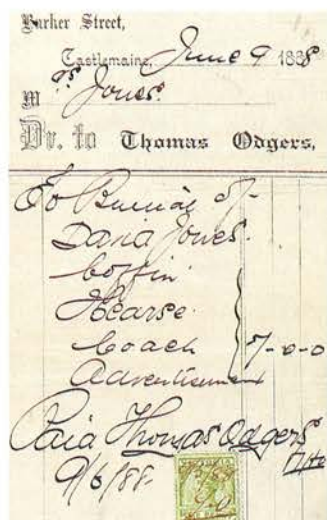 Parker Street,
Castlemaine, June 9 1888
Mrs Jones.
Dr. to Thomas Odgers,
To Burial of
David Jones.
Coffin
Hearse
Coach
Advertisement
Paid Thomas Odgers
9/6/88.